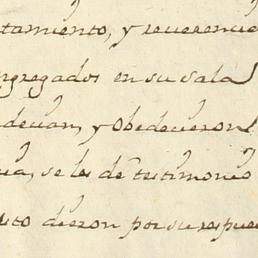 tamiento, y reverencia
ngregados en su sala
devian, y obedecieron
se les dè testimonio
dieron por su respue